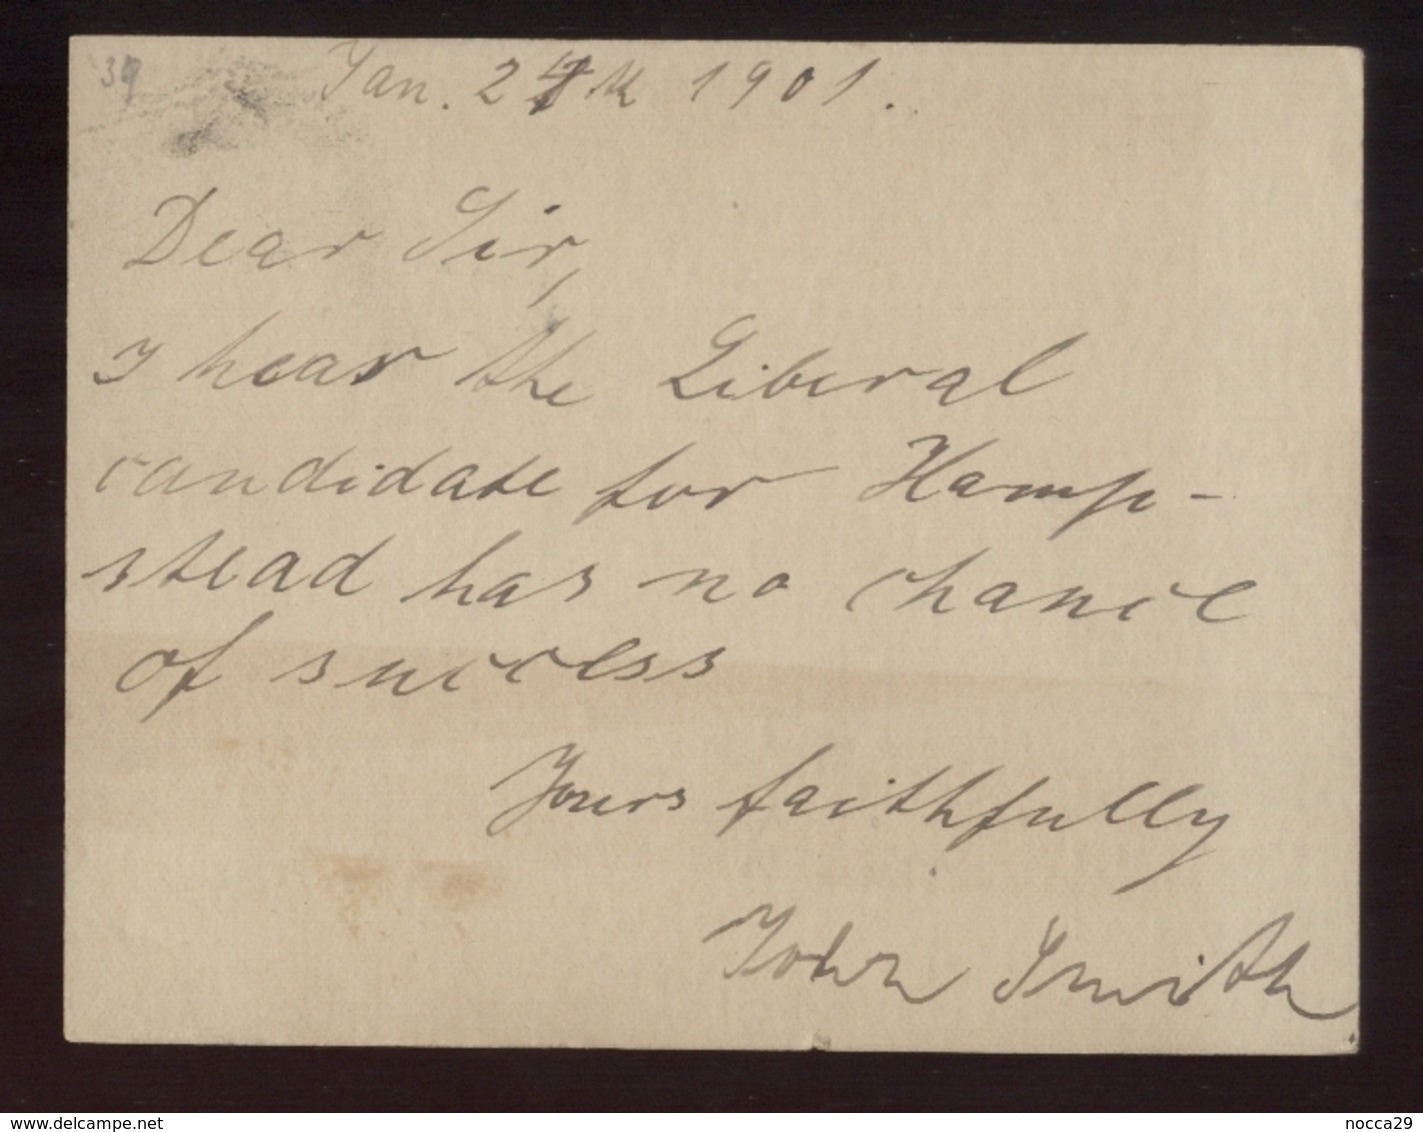 39
Jan. 24th 1901.
Dear Sir,
I hear the Liberal
candidate for Hamp-
stead has no chance
of success
Yours faithfully
John Smith
www.delcampe.net
nocca29